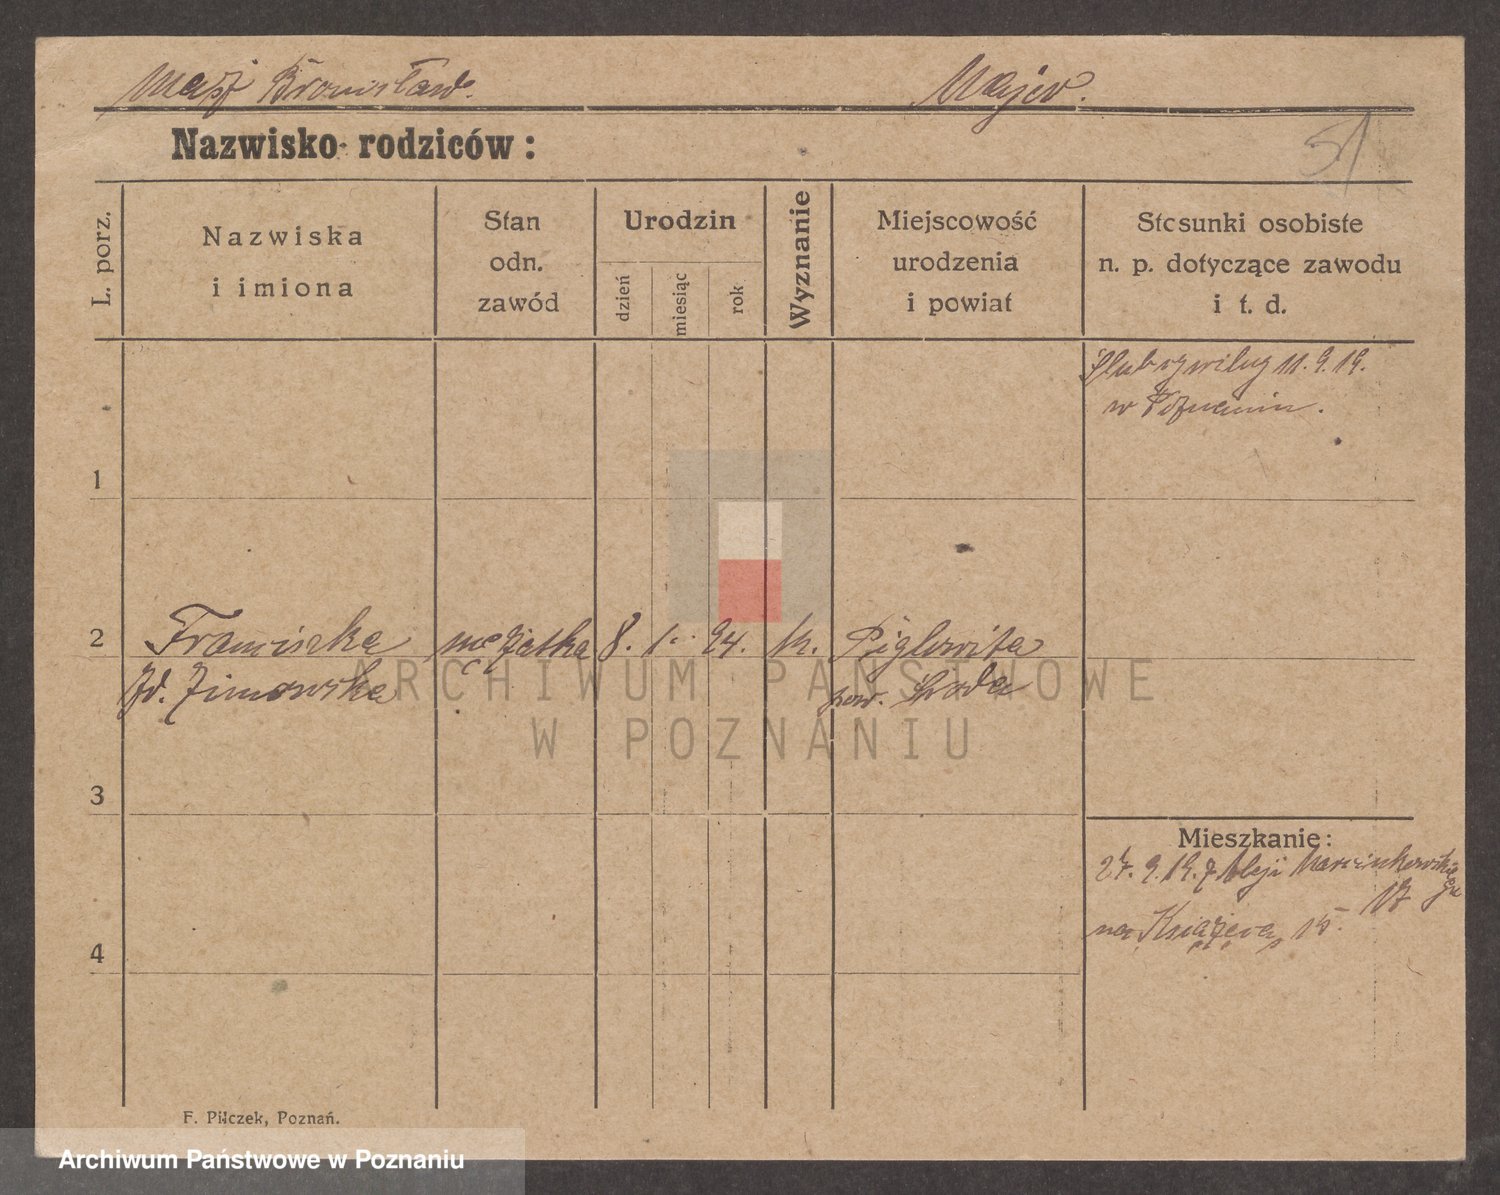 Mąż Bronisław. Majer.
Nazwisko rodziców:
51
L. porz.
Nazwiska
i imiona
Stan
odn.
zawód
Urodzin
dzień
miesiąc
rok
Wyznanie
Miejscowość
urodzenia
i powiat
Stosunki osobiste
n. p. dotyczące zawodu
i t. d.
Ślub cywilny 11.9.19.
w Poznaniu.
1
2 Franciszka mężatka 8. 1. 94. k. Pigłowita
zd. Zimowska pow. Środa
ARCHIWUM PAŃSTWOWE
W POZNANIU
3
Mieszkanie:
27.9.19. z Aleji Marcinkowskiego
17
na Książęcą 15.
4
F. Pilczek, Poznań.
Archiwum Państwowe w Poznaniu